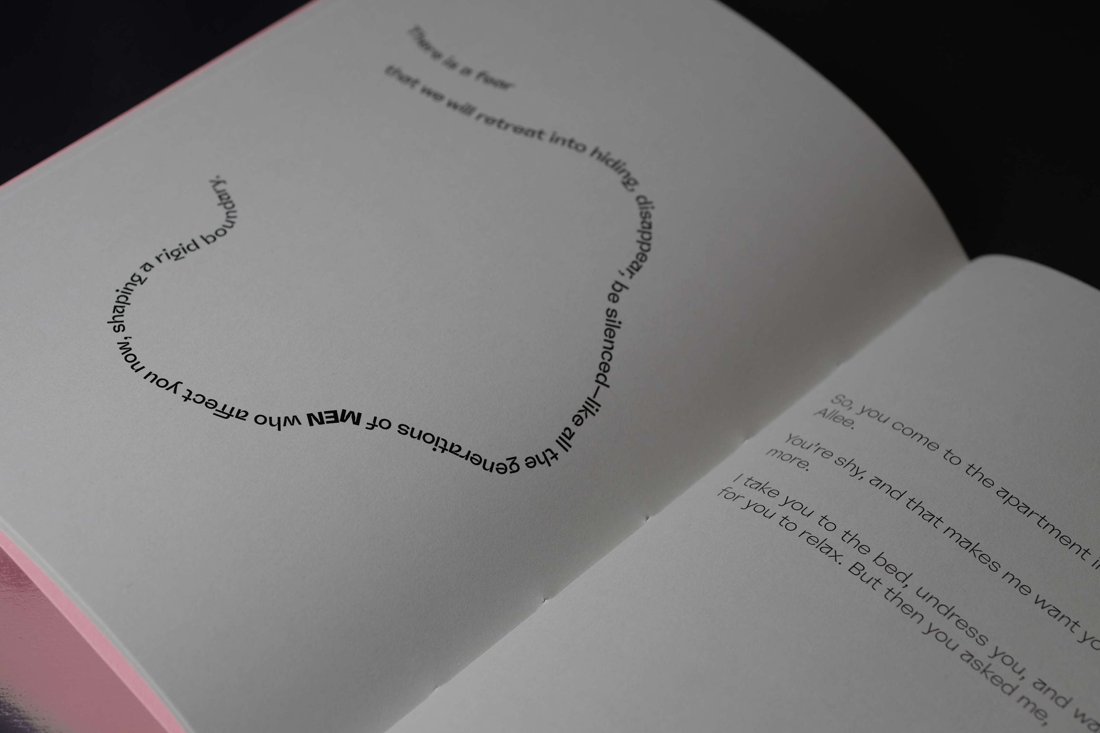 There is a fear
that we will retreat into hiding, disappear, be silenced—like all the generations of MEN who affect you now, shaping a rigid boundary.
So, you come to the apartment
Allee.
You're shy, and that makes me want
more.
I take you to the bed, undress you, and
for you to relax. But then you asked me,